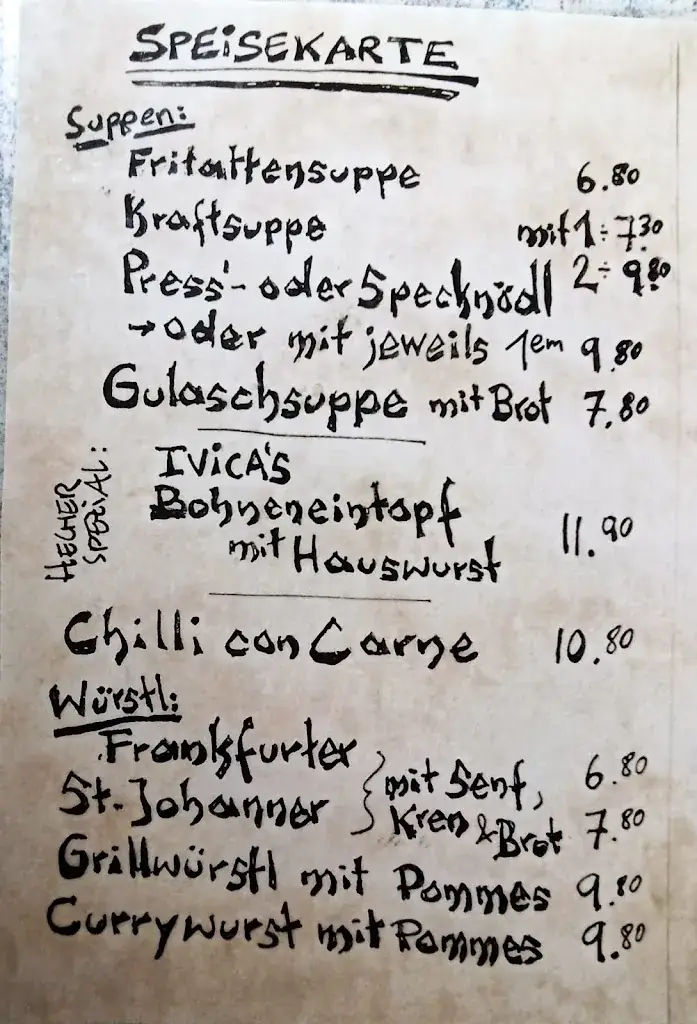 SPEiSEKARTE
Suppen:
Fritattensuppe 6.80
Kraftsuppe mit 1÷ 7.30
Press'- oder Specknödl 2÷ 9.80
→ oder mit jeweils 1em 9.80
Gulaschsuppe mit Brot 7.80
HECHER SPEZIAL:
IViCA'S
Bohneneintopf
mit Hauswurst 11.90
Chilli con Carne 10.80
Würstl:
Frankfurter mit Senf, 6.80
St. Johanner Kren & Brot 7.80
Grillwürstl mit Pommes 9.80
Currywurst mit Pommes 9.80